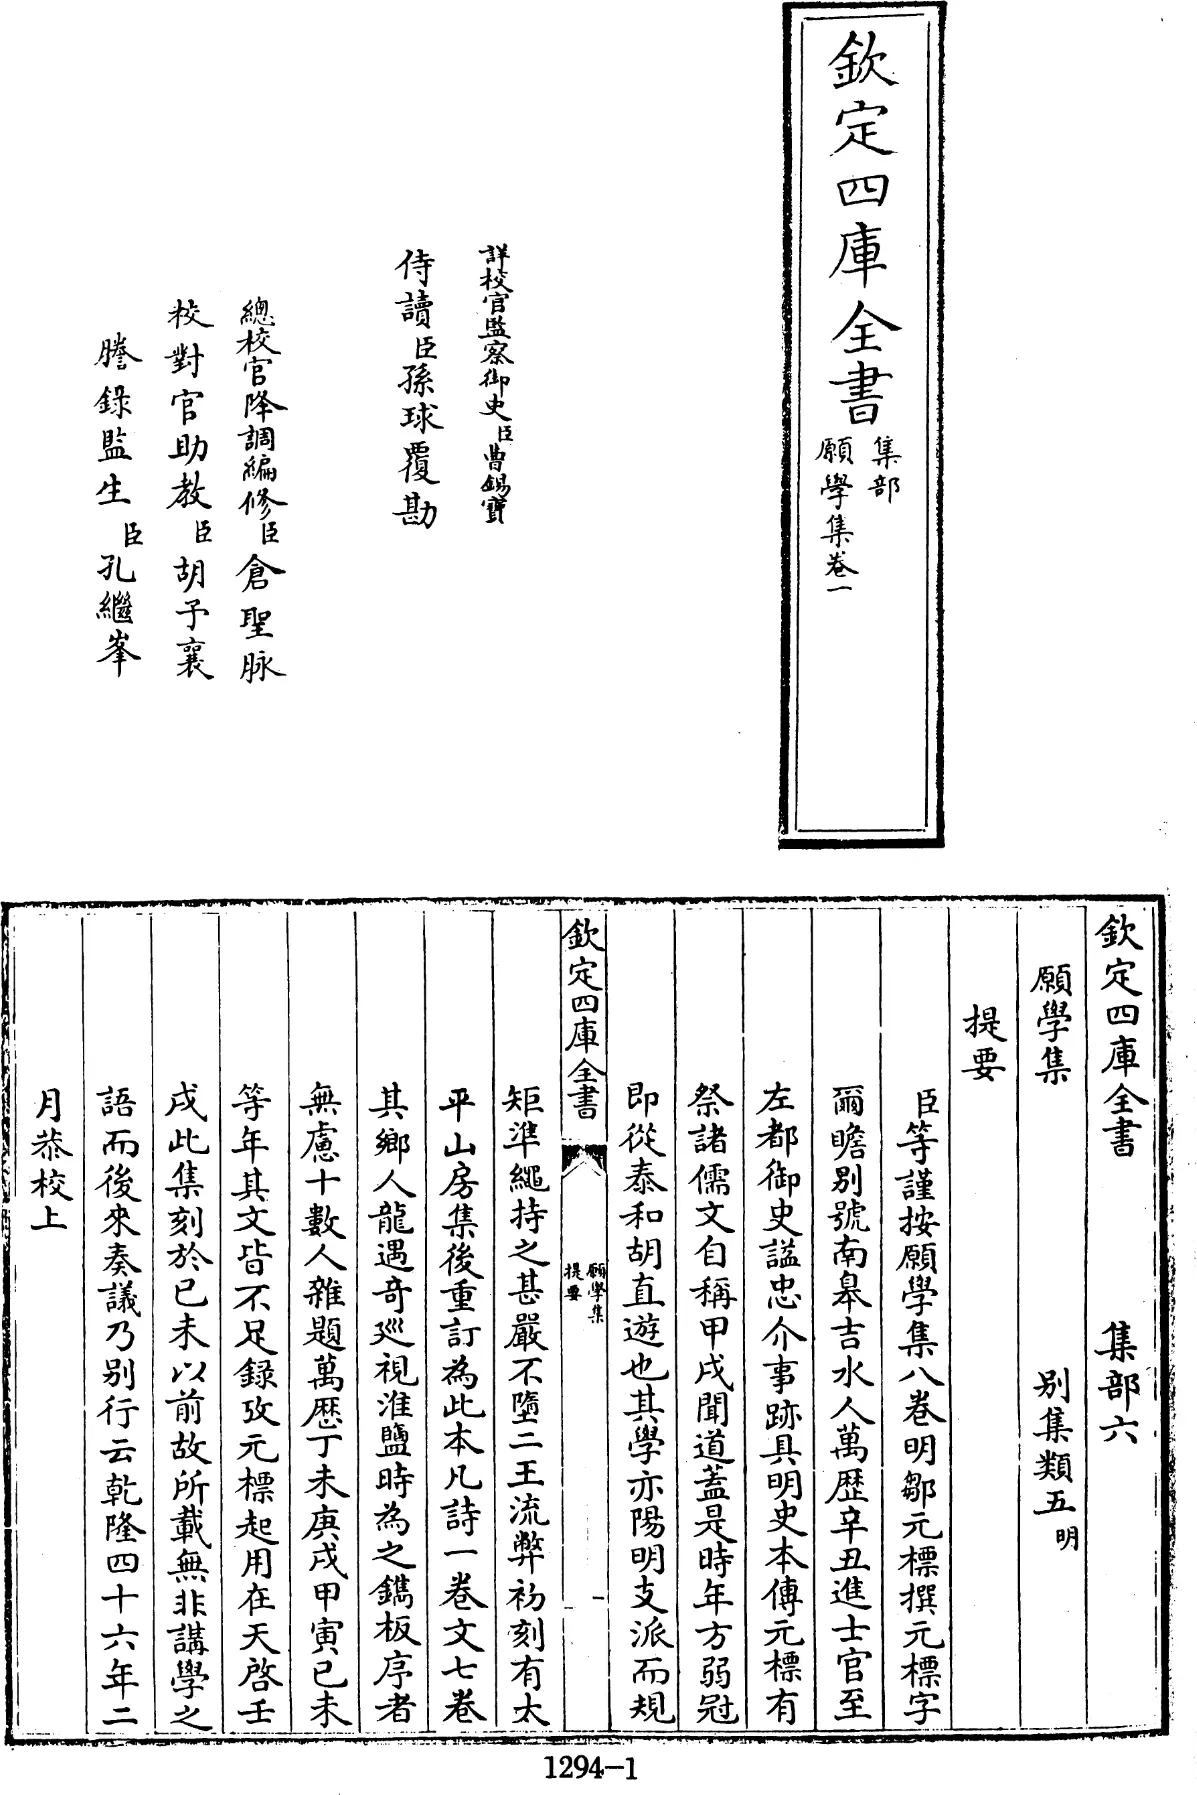 欽定四庫全書
集部
願學集卷一
詳校官監察御史臣曹錫寶
侍讀臣孫球覆勘
總校官降調編修臣倉聖脉
校對官助教臣胡予襄
謄錄監生臣孔繼峯
欽定四庫全書 集部六
願學集 別集類五明
提要
臣等謹按願學集八卷明鄒元標撰元標字
爾瞻別號南臯吉水人萬歷辛丑進士官至
左都御史諡忠介事跡具明史本傳元標有
祭諸儒文自稱甲戌聞道蓋是時年方弱冠
即從泰和胡直遊也其學亦陽明支派而規
欽定四庫全書
願學集
提要
一
矩準繩持之甚嚴不墮二王流弊初刻有太
平山房集後重訂為此本凡詩一卷文七卷
其鄉人龍遇奇廵視淮鹽時為之鐫板序者
無慮十數人雜題萬歷丁未庚戌甲寅已未
等年其文皆不足録攷元標起用在天啓壬
戌此集刻於已未以前故所載無非講學之
語而後來奏議乃別行云乾隆四十六年二
月恭校上
1294-1